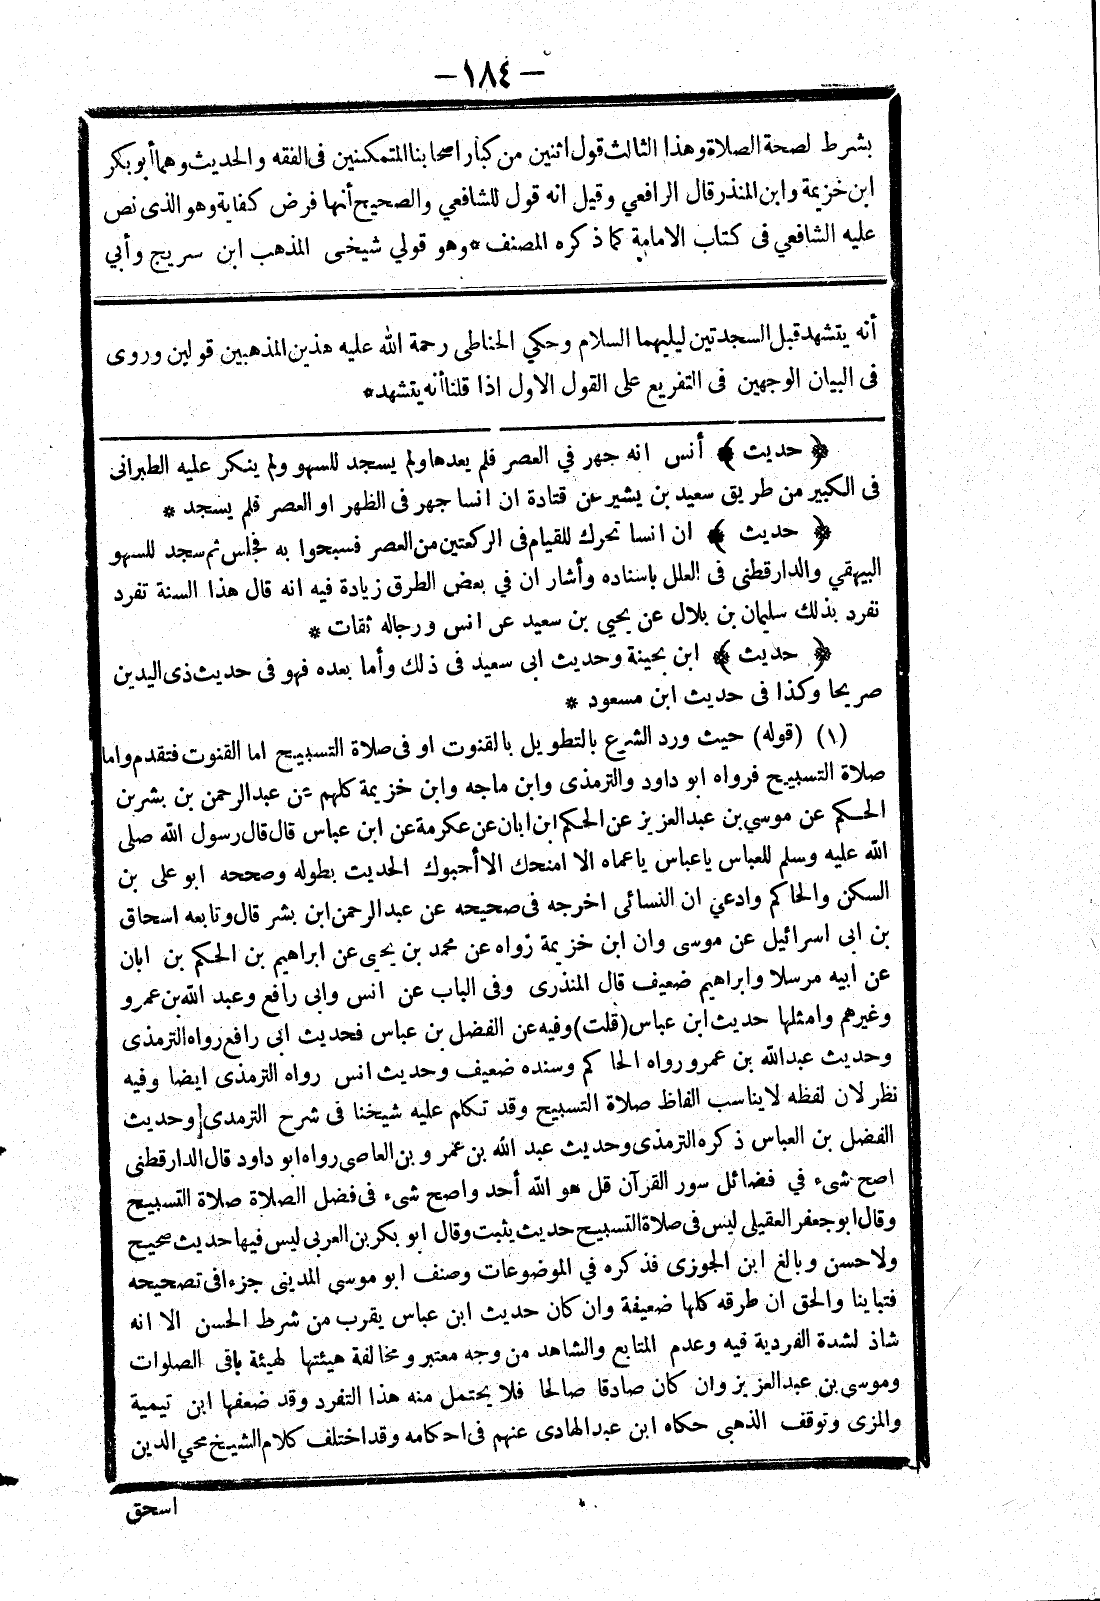 — ١٨٤ —
بشرط لصحة الصلاة وهذا الثالث قول اثنين من كبار اصحابنا المتمكنين فى الفقه والحديث وهما أبو بكر
ابن خزيمة وابن المنذر قال الرافعي وقيل انه قول للشافعي والصحيح أنها فرض كفاية وهو الذى نص
عليه الشافعي فى كتاب الامامة كما ذكره المصنف * وهو قولي شيخى المذهب ابن سريج وأبي
أنه يتشهد قبل السجدتين ليليهما السلام وحكي الحناطى رحمة الله عليه هذين المذهبين قولين وروى
فى البيان الوجهين فى التفريع على القول الاول اذا قلنا أنه يتشهد *
﴿ حديث ﴾ أنس انه جهر في العصر فلم يعدها ولم يسجد للسهو ولم ينكر عليه الطبرانى
فى الكبير من طريق سعيد بن بشير عن قتادة ان انسا جهر فى الظهر او العصر فلم يسجد *
﴿ حديث ﴾ ان انسا تحرك للقيام فى الركعتين من العصر فسبحوا به فجلس ثم سجد للسهو
البيهقي والدارقطنى فى العلل باسناده وأشار ان في بعض الطرق زيادة فيه انه قال هذا السنة تفرد
تفرد بذلك سليمان بن بلال عن يحيى بن سعيد عن انس ورجاله ثقات *
﴿ حديث ﴾ ابن بحينة وحديث ابى سعيد فى ذلك وأما بعده فهو فى حديث ذى اليدين
صريحا وكذا فى حديث ابن مسعود *
(١) (قوله) حيث ورد الشرع بالتطويل بالقنوت او فى صلاة التسبيح اما القنوت فتقدم واما
صلاة التسبيح فرواه ابو داود والترمذى وابن ماجه وابن خزيمة كلهم عن عبدالرحمن بن بشر بن
الحكم عن موسي بن عبدالعزيز عن الحكم ابن ابان عن عكرمة عن ابن عباس قال قال رسول الله صلى
الله عليه وسلم للعباس ياعباس ياعماه الا امنحك الا أحبوك الحديث بطوله وصححه ابو على بن
السكن والحاكم وادعي ان النسائى اخرجه فى صحيحه عن عبدالرحمن ابن بشر قال وتابعه اسحاق
بن ابى اسرائيل عن موسى وان ابن خزيمة رواه عن محمد بن يحيى عن ابراهيم بن الحكم بن ابان
عن ابيه مرسلا وابراهيم ضعيف قال المنذرى وفى الباب عن انس وابى رافع وعبد الله بن عمرو
وغيرهم وامثلها حديث ابن عباس (قلت) وفيه عن الفضل بن عباس فحديث ابى رافع رواه الترمذى
وحديث عبدالله بن عمرو رواه الحاكم وسنده ضعيف وحديث انس رواه الترمذى ايضا وفيه
نظر لان لفظه لايناسب الفاظ صلاة التسبيح وقد تكلم عليه شيخنا فى شرح الترمذى وحديث
الفضل بن العباس ذكره الترمذى وحديث عبد الله بن عمر وبن العاصى رواه ابو داود قال الدارقطنى
اصح شىء في فضائل سور القرآن قل هو الله أحد واصح شىء فى فضل الصلاة صلاة التسبيح
وقال ابو جعفر العقيلى ليس فى صلاة التسبيح حديث يثبت وقال ابو بكر بن العربى ليس فيها حديث صحيح
ولا حسن وبالغ ابن الجوزى فذكره في الموضوعات وصنف ابو موسي المدينى جزءا فى تصحيحه
فتباينا والحق ان طرقه كلها ضعيفة وان كان حديث ابن عباس يقرب من شرط الحسن الا انه
شاذ لشدة الفردية فيه وعدم المتابع والشاهد من وجه معتبر ومخالفة هيئتها لهيئة باقى الصلوات
وموسى بن عبدالعزيز وان كان صادقا صالحا فلا يحتمل منه هذا التفرد وقد ضعفها ابن تيمية
والمزى وتوقف الذهبى حكاه ابن عبدالهادى عنهم فى احكامه وقد اختلف كلام الشيخ محي الدين
اسحق